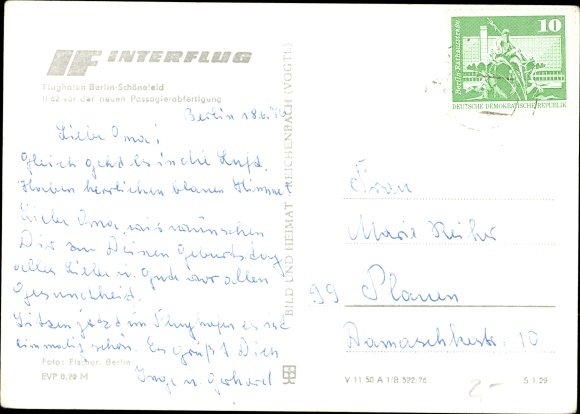 IF INTERFLUG
Flughafen Berlin-Schönefeld
Il 62 vor der neuen Passagierabfertigung
Berlin 18.6.76
Liebe Oma!
Gleich geht es in die Luft.
Haben herrlichen blauen Himmel
Liebe Oma, wir wünschen
Dir zu Deinem Geburtstag
alles Liebe u. Gute vor allem
Gesundheit.
Sitzen jetzt im Flughafen es ist
einmalig schön. Es grüßt Dich
Inge u. Gerhard
Foto: Fischer, Berlin
EVP 0,20 M
BILD UND HEIMAT REICHENBACH (VOGTL)
10
Berlin-Rathausstraße
DEUTSCHE DEMOKRATISCHE REPUBLIK
Frau
Marie Reiher
99 Plauen
Damaschkestr. 10
V 11 50 A 1/B 522/76
S 1.29
2,-